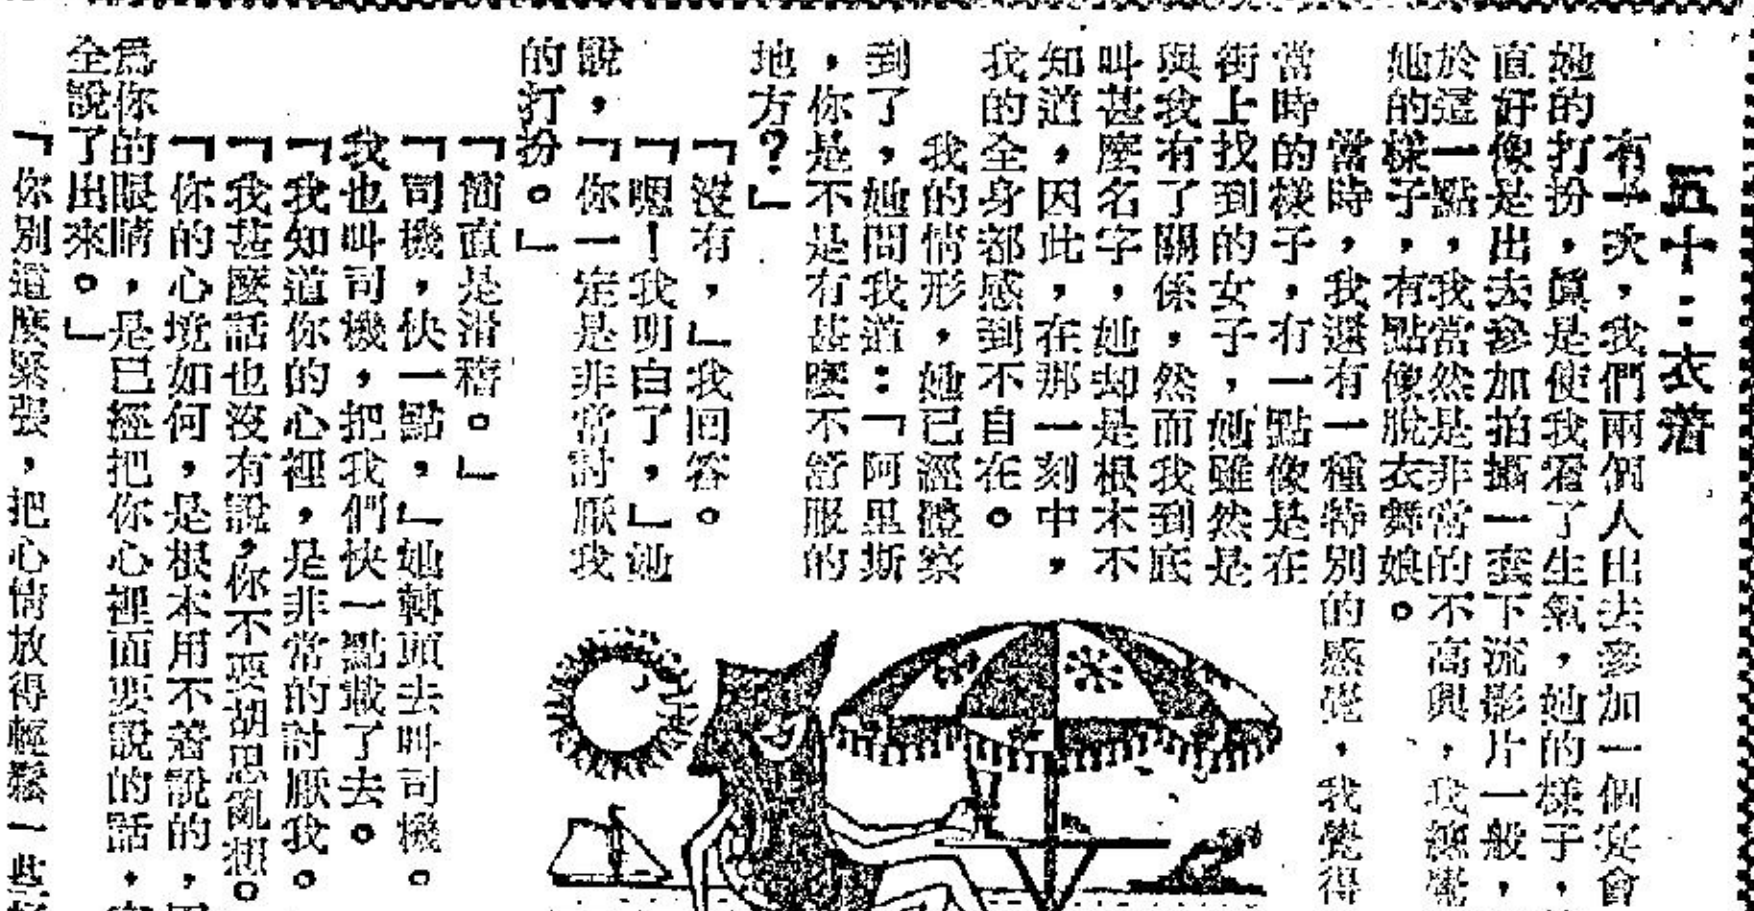 五十：衣着
有一次，我們兩個人出去參加一個宴會
她的打扮，眞是使我看了生氣，她的樣子，
直好像是出去參加拍攝一套下流影片一般，
於這一點，我當然是非常的不高興，我總覺
她的樣子，有點像脫衣舞娘。
當時，我還有一種特別的感覺，我覺得
當時的樣子，有一點像是在
街上找到的女子，她雖然是
與我有了關係，然而我到底
叫甚麼名字，她却是根本不
知道，因此，在那一刻中，
我的全身都感到不自在。
我的情形，她已經體察
到了，她問我道：「阿里斯
，你是不是有甚麼不舒服的
地方？」
「沒有，」我回答。
「嗯！我明白了，」她
說，「你一定是非常討厭我
的打扮。」
「簡直是滑稽。」
「司機，快一點，」她轉頭去叫司機。
我也叫司機，把我們快一點載了去。
「我知道你的心裡，是非常的討厭我。
「我甚麼話也沒有說，你不要胡思亂想。
「你的心境如何，是根本用不着說的，因
爲你的眼睛，是已經把你心裡面要說的話，
全說了出來。」
「你別這麼緊張，把心情放得輕鬆一些